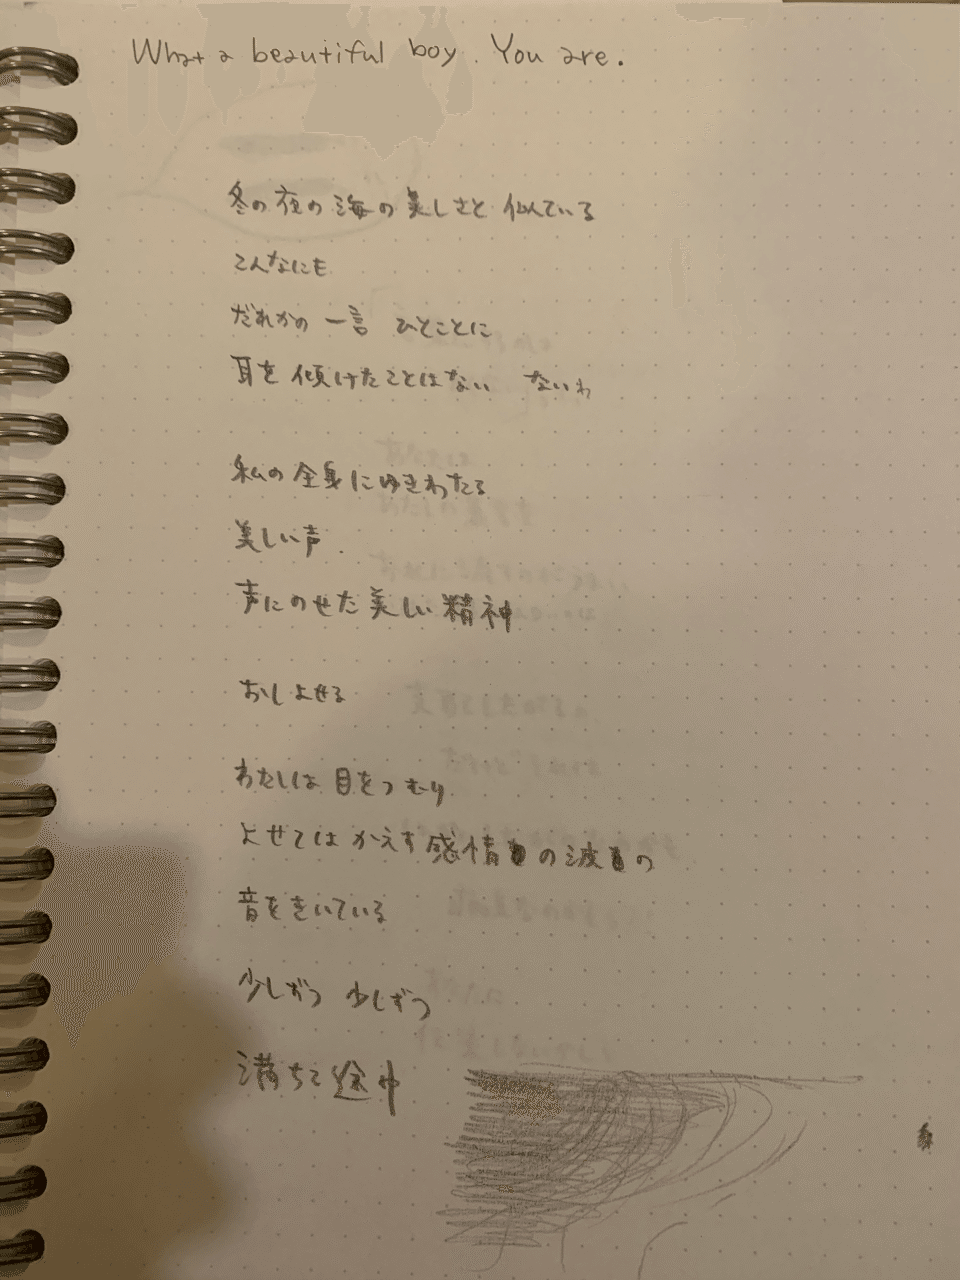 What a beautiful boy. You are.
冬の夜の海の美しさと 似ている
こんなにも
だれかの 一言 ひとことに
耳を 傾けたことはない ないわ
私の全身にゆきわたる
美しい声.
声にのせた美しい精神
おしよせる
わたしは目をつむり
よせてはかえす感情の波の
音をきいている
少しずつ 少しずつ
満ちて